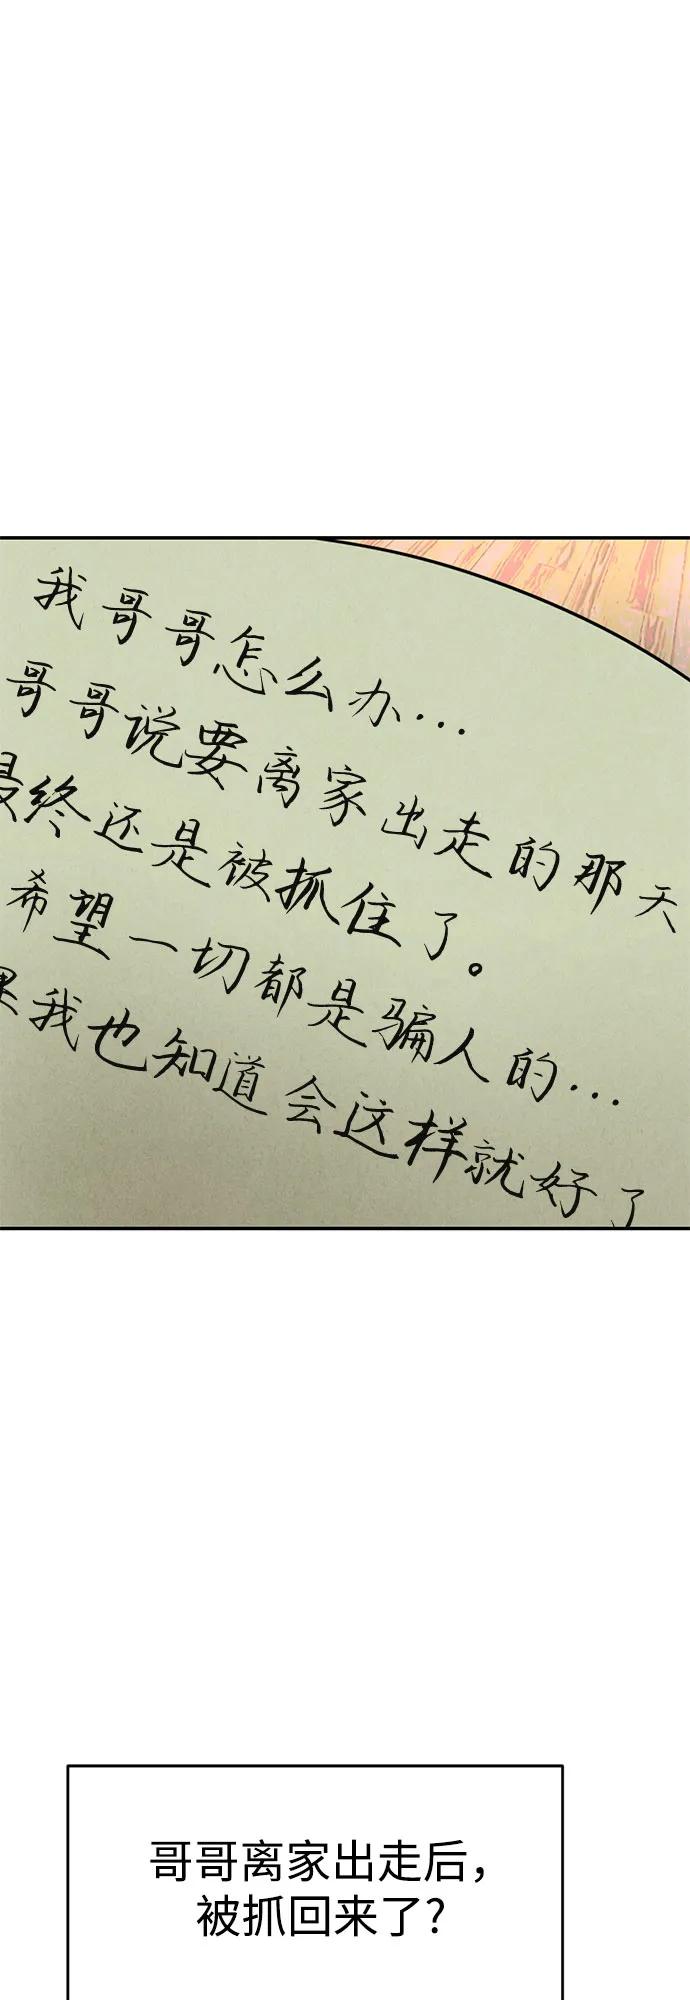 我哥哥怎么办...
哥哥说要离家出走的那天
最终还是被抓住了。
希望一切都是骗人的...
果我也知道会这样就好了
哥哥离家出走后，
被抓回来了？